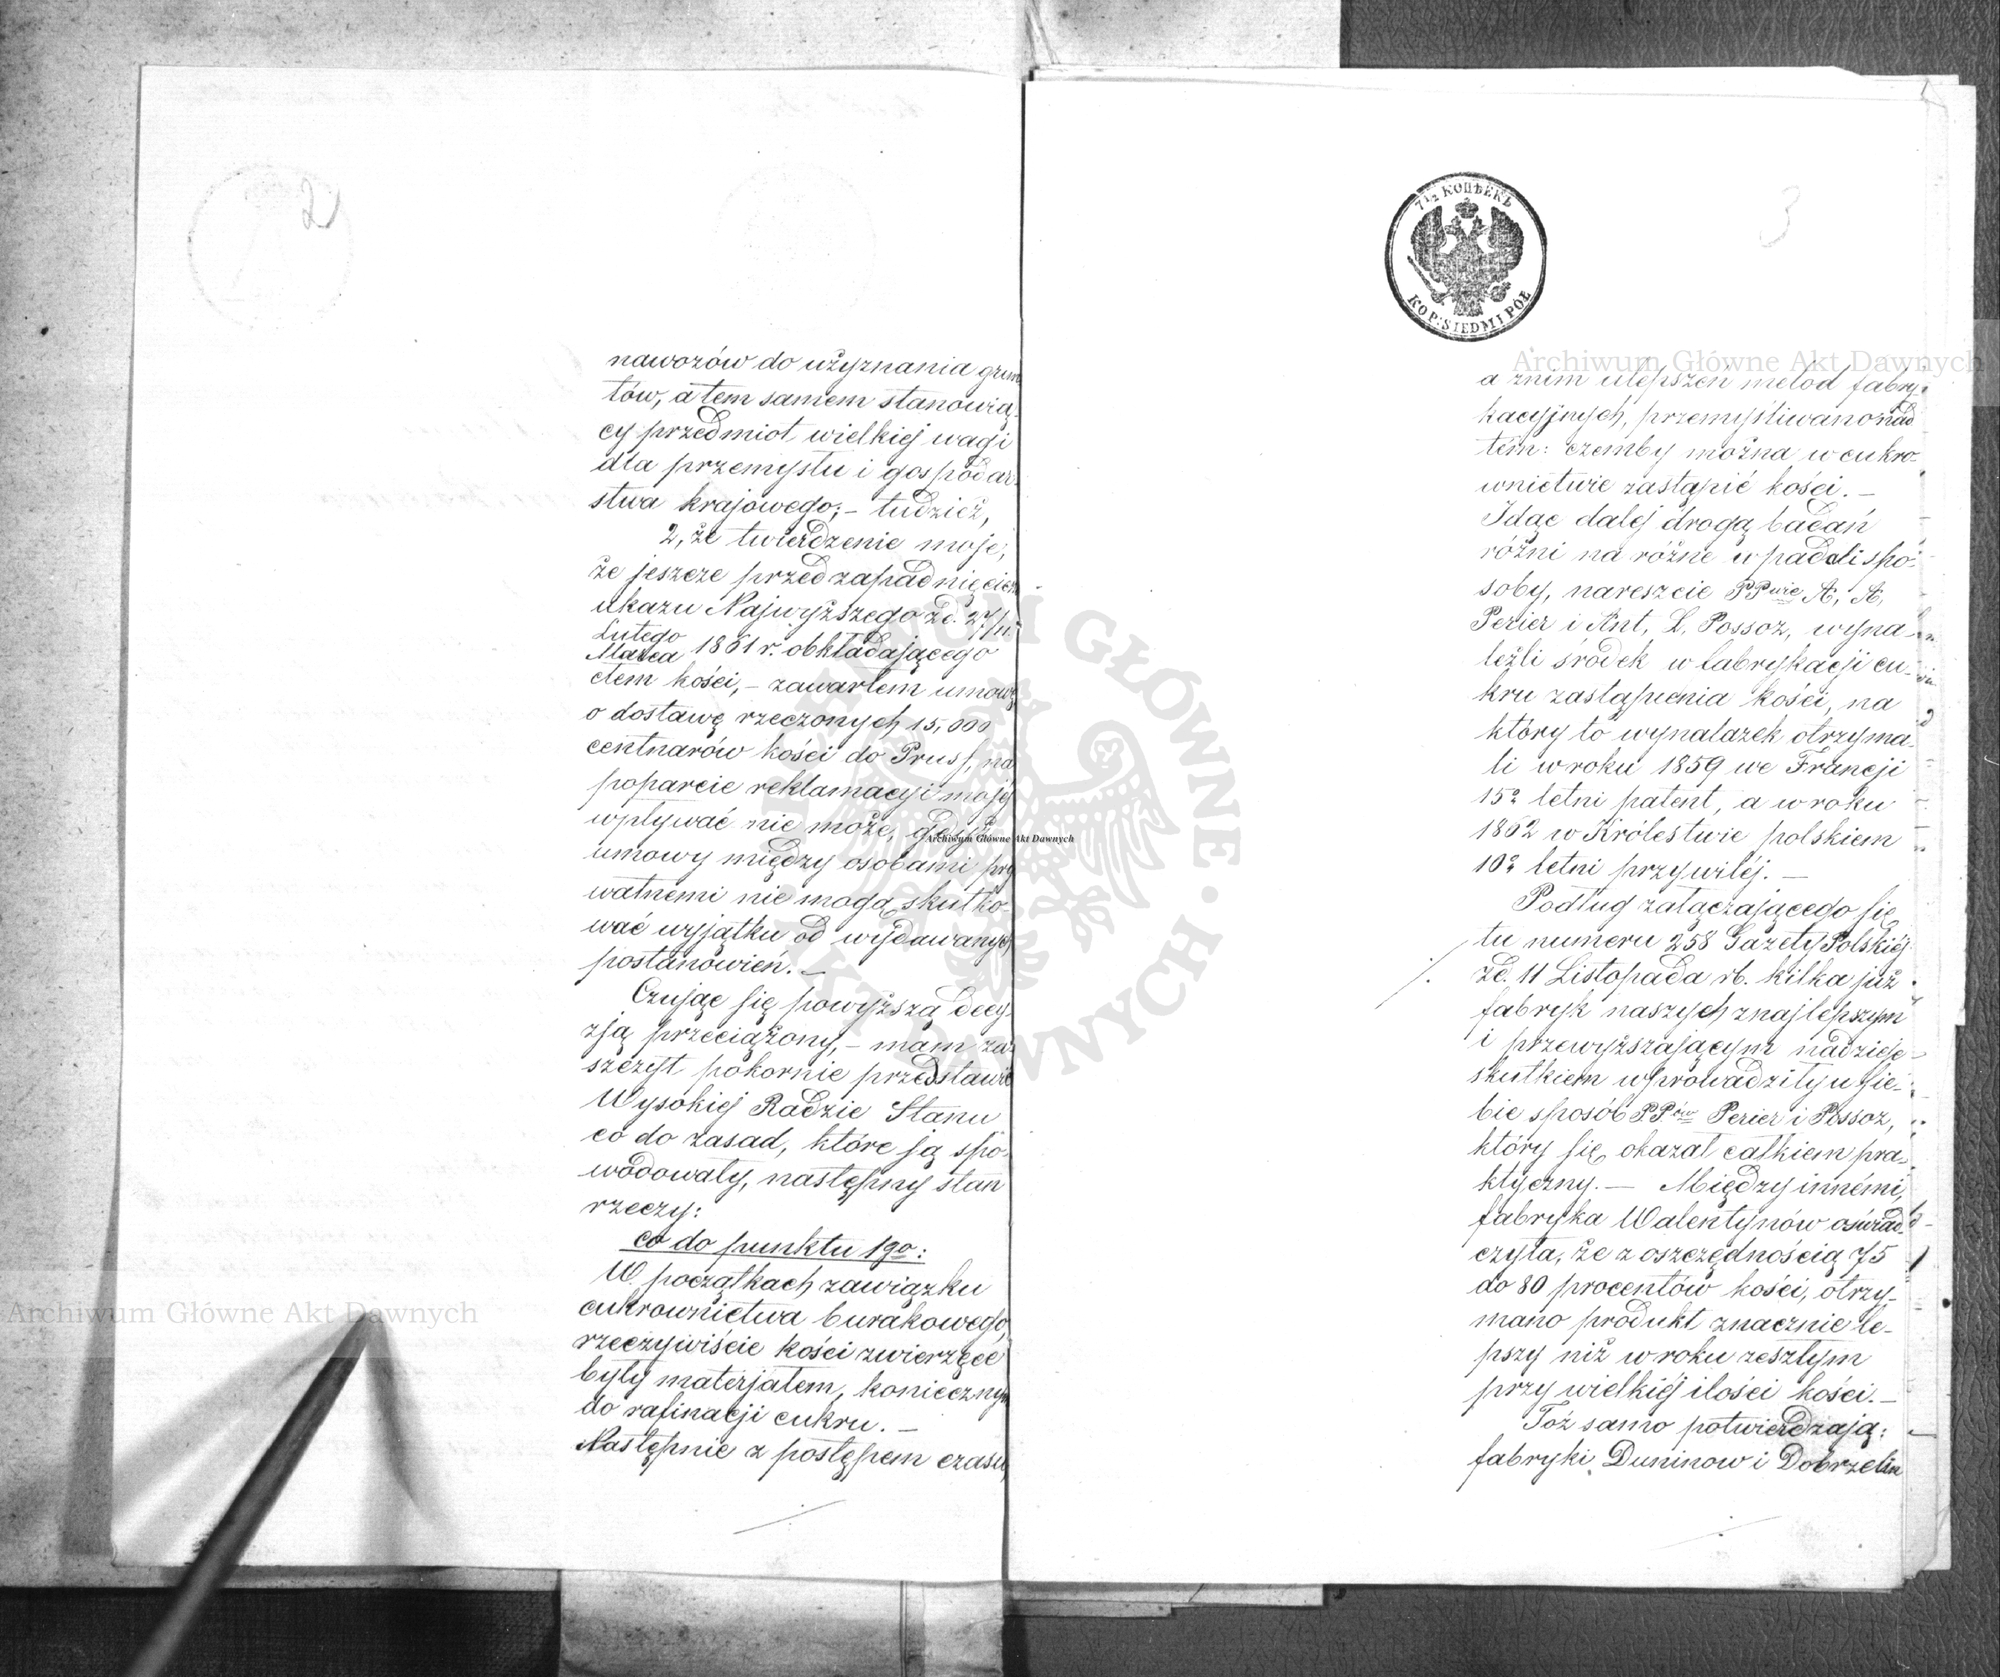 2
nawozów do użyznania grun
tów, a tem samem stanowią-
cy przedmiot wielkiej wagi
dla przemysłu i gospodar-
stwa krajowego; – tudzież,
2, że twierdzenie moje,
że jeszcze przed zapadnięciem
ukazu Najwyższego z d. 27/11
Lutego
Marca 1861 r. obkładającego
cłem kości, – zawarłem umowę
o dostawę rzeczonych 15,000
centnarów kości do Pruss, na
poparcie reklamacyi mojéj
wpływać nie może, gdyż
umowy między osobami pry
watnemi nie mogą skutko-
wać wyjątku od wydawanych
postanowień. –
Czując się powyższą decy-
zją przeciążony, – mam za-
szczyt pokornie przedstawić
Wysokiej Radzie Stanu
co do zasad, które ją spo-
wodowały, następny stan
rzeczy:
co do punktu 1go:
W początkach zawiązku
cukrownictwa burakowego,
rzeczywiście kości zwierzęce
były materjałem, koniecznym
do rafinacji cukru. –
Następnie z postępem czasu,
7 1/2 КОПѢЕКЪ
KOP: SIEDM I PÓŁ
3
a z nim ulepszeń metod fabry-
kacyjnych, przemyśliwano nad
tem: czemby można w cukro-
wnictwie zastąpić kości. –
Idąc dalej drogą badań
różni na różne wpadali spo-
soby, nareszcie PPwie A, A,
Perier i Ant, L, Possoz, wyna-
leźli środek w fabrykacji cu-
kru zastąpienia kości, na
który to wynalazek otrzyma-
li w roku 1859 we Francji
15o letni patent, a w roku
1862 w Królestwie polskiem
10o letni przywiléj. –
Podług załączającego się
tu numeru 258 Gazety Polskiéj
z d. 11 Listopada rb. kilka już
fabryk naszych z najlepszym
i przewyższającym nadzieje
skutkiem wprowadziły u sie-
bie sposób PPów Perier i Possoz,
który się okazał całkiem pra-
ktyczny. – Między innémi,
fabryka Walentynów oświad-
czyła, że z oszczędnością 75
do 80 procentów kości, otrzy-
mano produkt znacznie le-
pszy niż w roku zeszłym
przy wielkiéj ilości kości. –
Toż samo potwierdzają:
fabryki Duninow i Dobrzelin
Archiwum Główne Akt Dawnych
Archiwum Główne Akt Dawnych
Archiwum Główne Akt Dawnych
ARCHIWUM GŁÓWNE AKT DAWNYCH